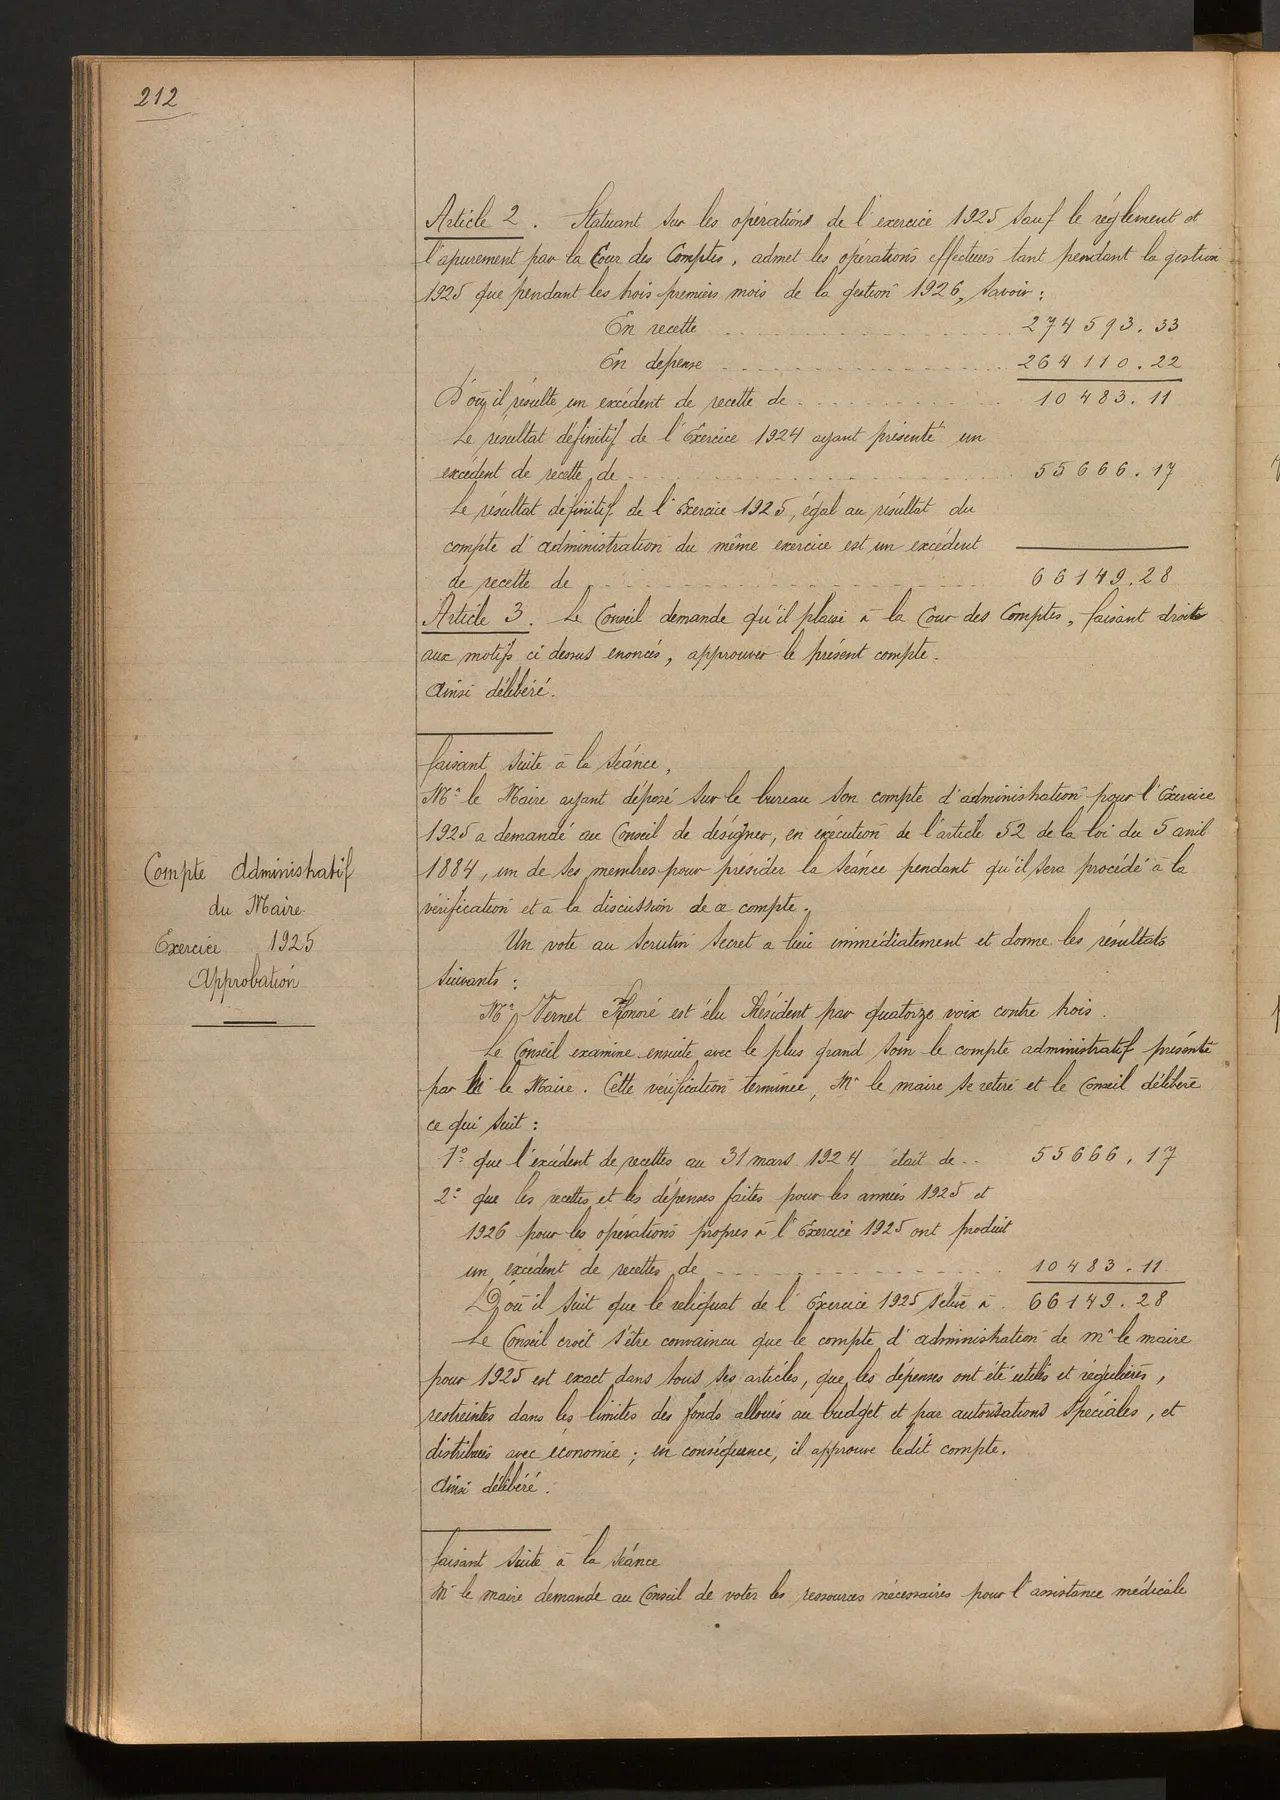 212
Article 2. Statuant sur les opérations de l'exercice 1925 sauf le réglement et
l'apurement par la Cour des Comptes, admet les opérations effectuées tant pendant la gestion
1925 que pendant les trois premiers mois de la gestion 1926, savoir :
En recette 274593.33
En dépense 264110.22
D'où il résulte un excédent de recette de 10483.11
Le résultat définitif de l'Exercice 1924 ayant présenté un
excédent de recette de 55666.17
Le résultat définitif de l'Exercice 1925, égal au résultat du
compte d'administration du même exercice est un excédent
de recette de 66149.28
Article 3. Le Conseil demande qu'il plaise à la Cour des Comptes, faisant droit
aux motifs ci dessus enoncés, approuver le présent compte.
Ainsi délibéré.
Faisant suite à la séance,
Mr le Maire ayant déposé sur le bureau son compte d'administration pour l'Exercice
1925 a demandé au Conseil de désigner, en exécution de l'article 52 de la loi du 5 avril
1884, un de ses membres pour présider la séance pendant qu'il sera procédé à la
vérification et à la discussion de ce compte.
Compte Administratif
du Maire
Exercice 1925
Approbation
Un vote au scrutin secret a lieu immédiatement et donne les résultats
suivants :
Mr Vernet Honoré est élu Président par quatorze voix contre trois.
Le Conseil examine ensuite avec le plus grand soin le compte administratif présenté
par M le Maire. Cette vérification terminée, Mr le maire se retire et le Conseil délibère
ce qui suit :
1° que l'excédent de recettes au 31 mars 1924 était de 55666.17
2° que les recettes et les dépenses faites pour les années 1925 et
1926 pour les opérations propres à l'Exercice 1925 ont produit
un excédent de recettes de 10483.11
D'où il suit que le reliquat de l'Exercice 1925 s'élève à 66149.28
Le Conseil croit s'être convaincu que le compte d'administration de Mr le maire
pour 1925 est exact dans tous ses articles, que les dépenses ont été utiles et régulières,
restreintes dans les limites des fonds alloués au budget et par autorisations spéciales, et
distribuées avec économie ; en conséquence, il approuve ledit compte.
Ainsi délibéré.
Faisant suite à la séance
Mr le maire demande au Conseil de voter les ressources nécessaires pour l'assistance médicale